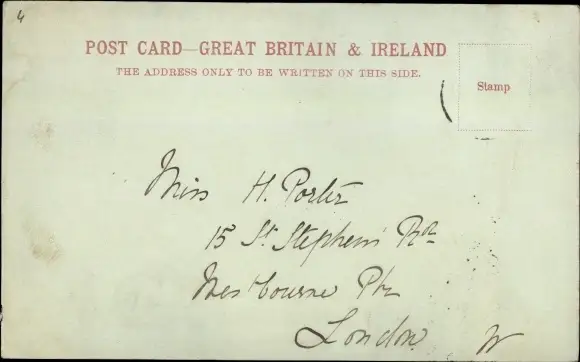 4
POST CARD—GREAT BRITAIN & IRELAND
THE ADDRESS ONLY TO BE WRITTEN ON THIS SIDE.
Stamp
Miss H. Porter
15 St Stephens Rd
Westbourne Pk
London. W